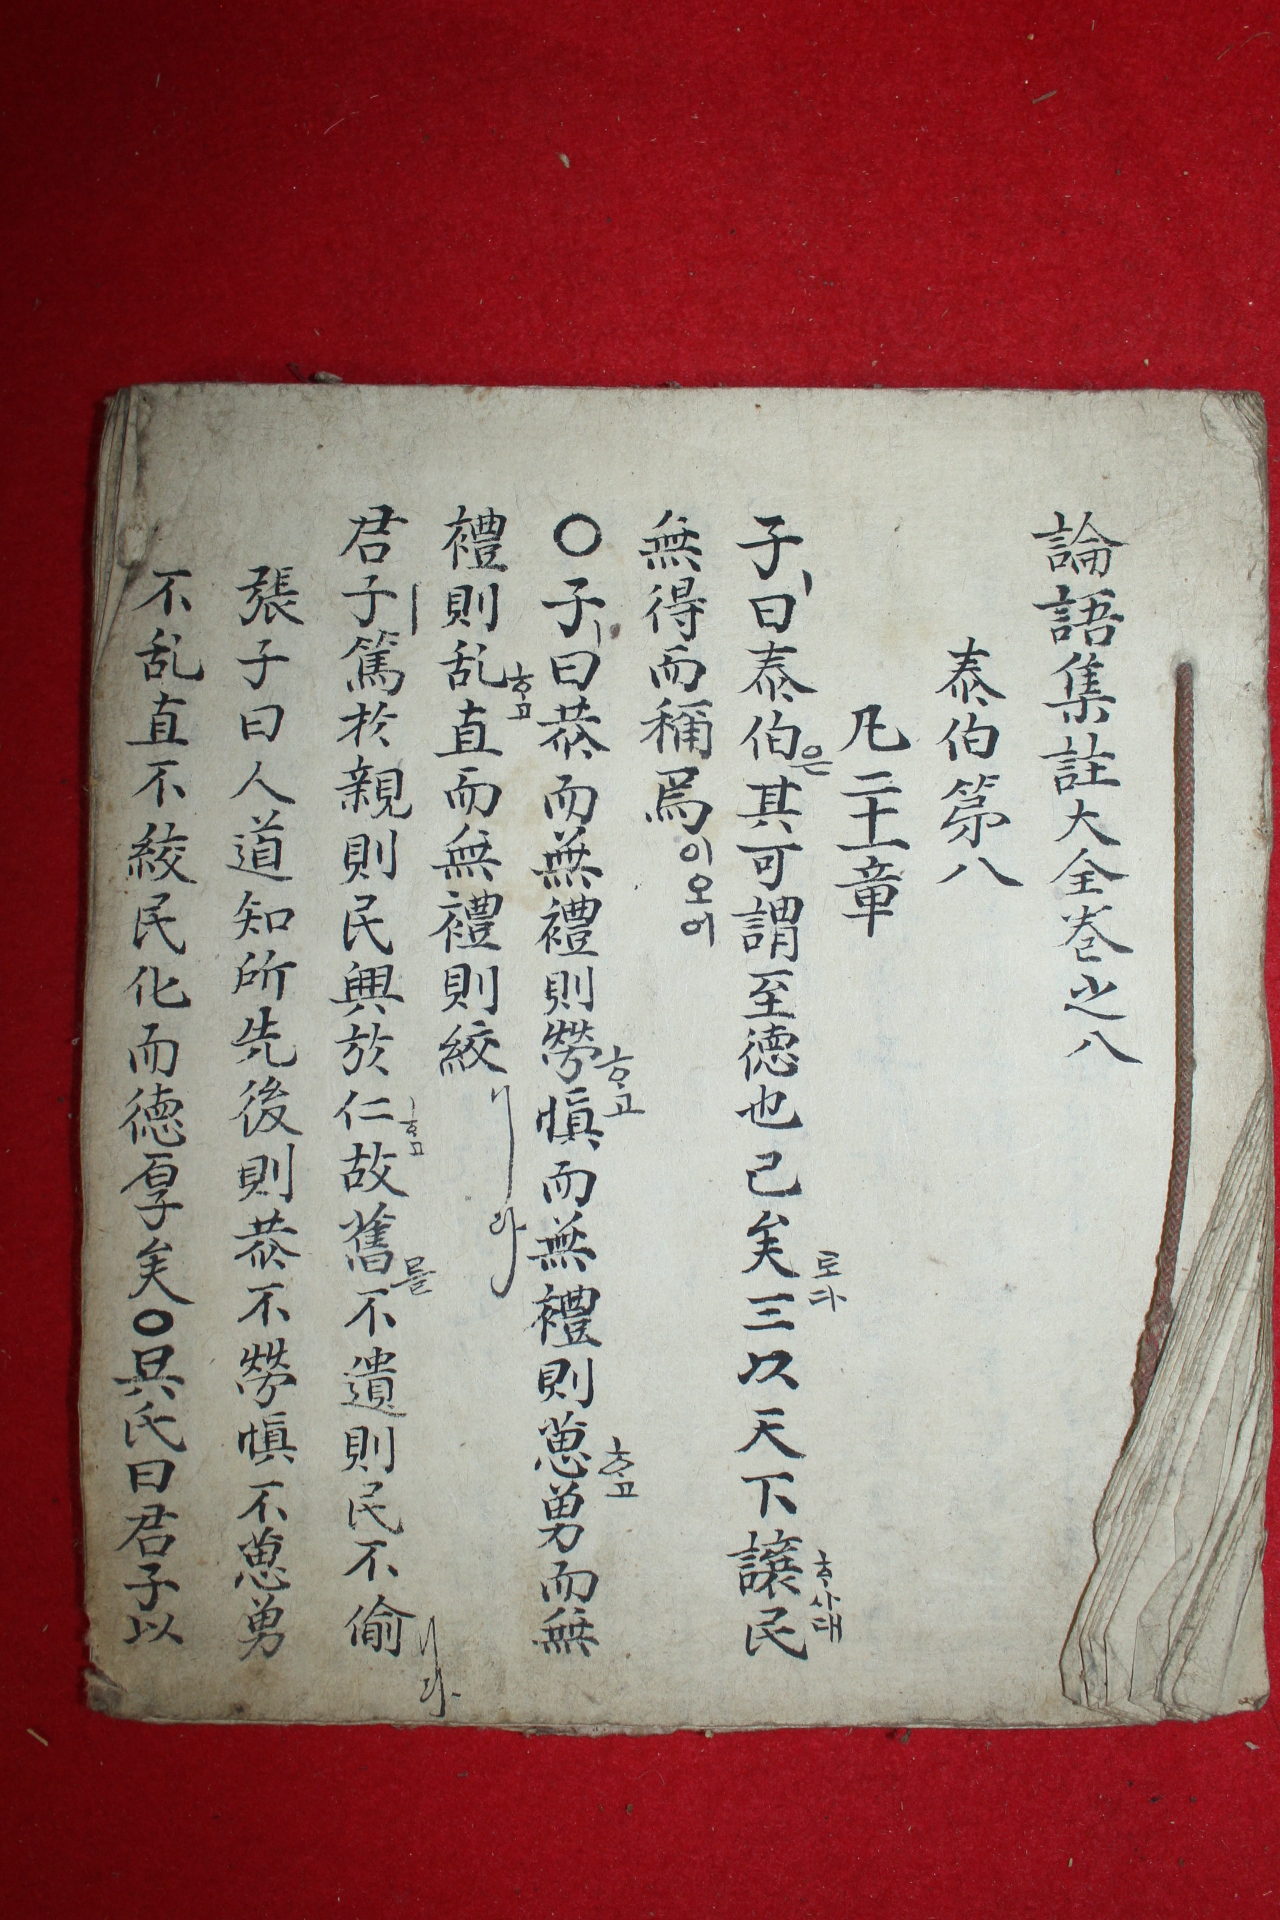 論語集註大全卷之八
泰伯第八
凡二十一章
子ㅣ曰泰伯은其可謂至德也已矣로다三以天下讓ᄒᆞ사대民
無得而稱焉이오여
○子ㅣ曰恭而無禮則勞ᄒᆞ고愼而無禮則葸ᄒᆞ고勇而無
禮則乱ᄒᆞ고直而無禮則絞니라
君子ㅣ篤於親則民興於仁ᄒᆞ고故舊를不遺則民不偷니라
張子曰人道知所先後則恭不勞愼不葸勇
不乱直不絞民化而德厚矣○吳氏曰君子以